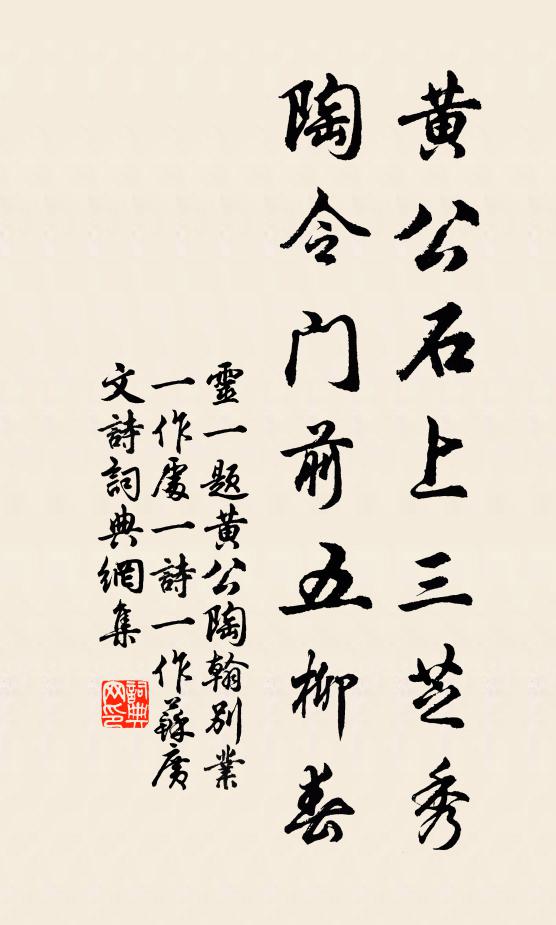 黄公石上三芝秀
陶令门前五柳春
靈一題黄公陶翰别業
一作處一詩一作蘇廣
文詩詞典網集
詞典
网印